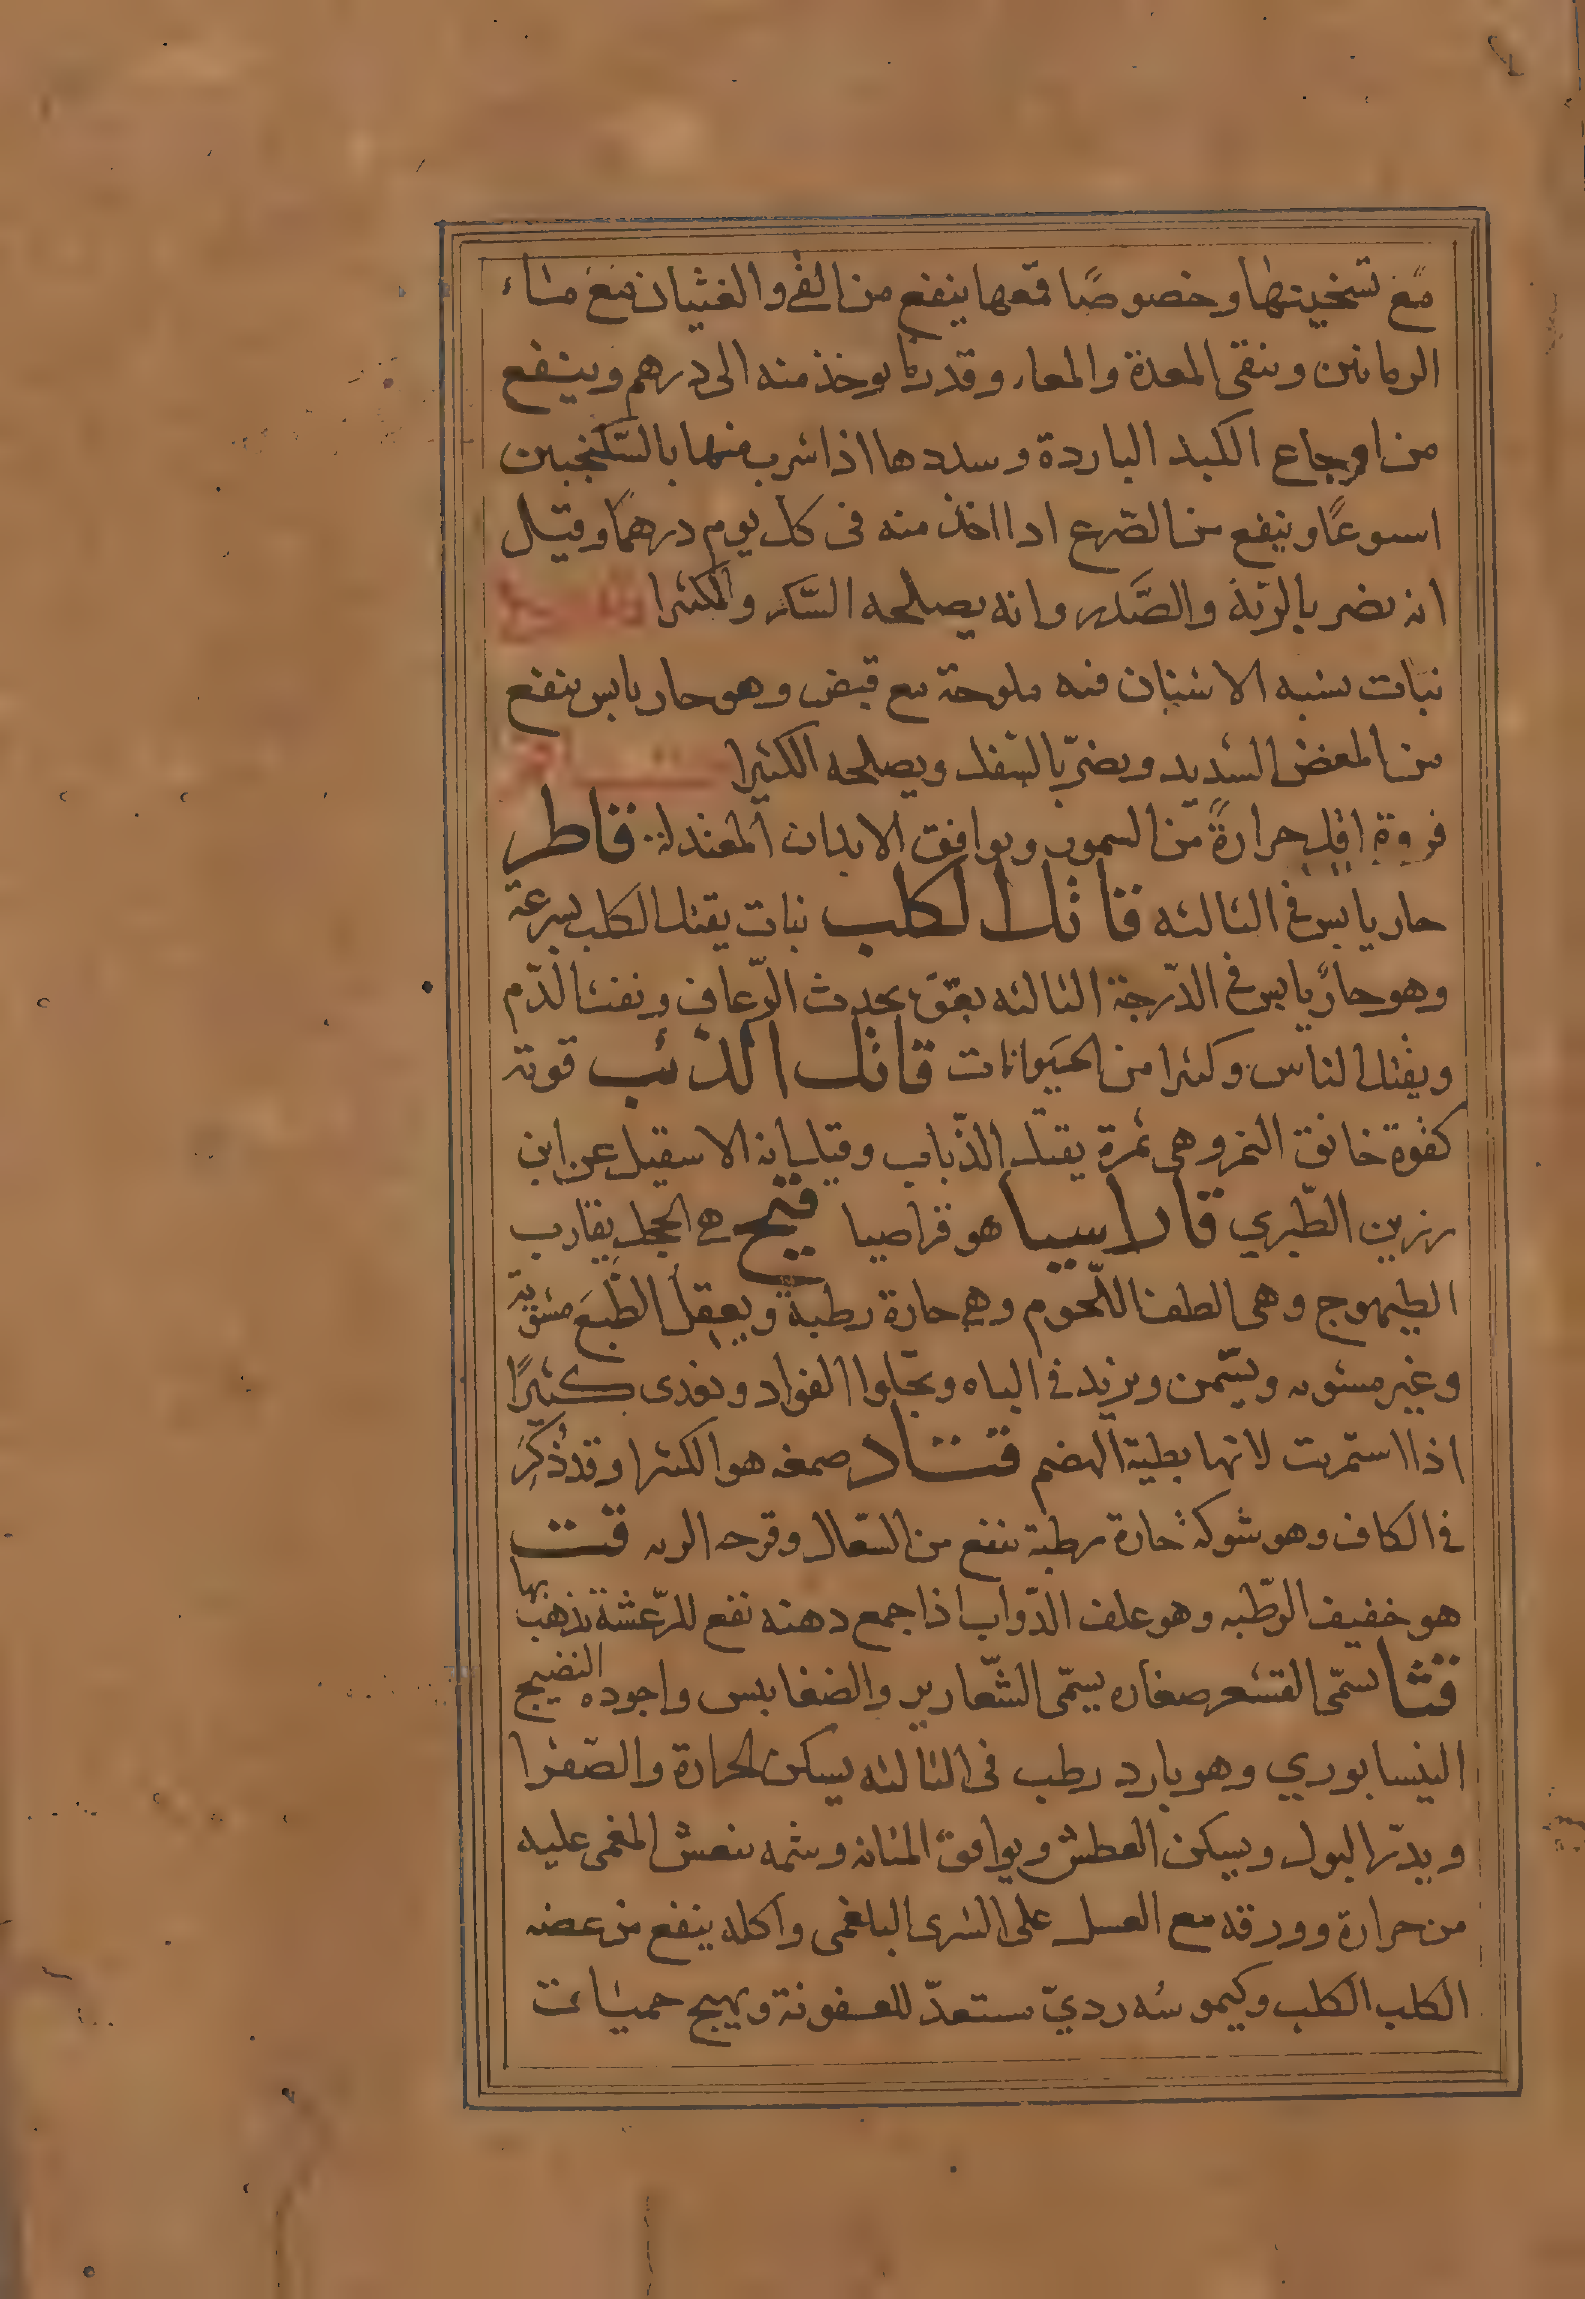 مع تسخينها وخصوصًا قمعها ينفع من القي والغثيان مع ماء
الرمانين وينقى المعدة والمعاء وقدر ما يوخذ منه الى درهم وينفع
من اوجاع الكبد الباردة وسددها اذا شرب منها بالسّكنجبين
اسبوعًا وينفع من الصّرع ادا اخذ منه فى كل يوم درهمًا وقيل
انه يضر بالرئة والصَّدر وانه يصلحه السّكر والكثيرا
نبات يشبه الاشنان فيه ملوحة مع قبض وهو حار يابس ينفع
من المغض الشديد ويضرّ بالسفل ويصلحه الكثيرا
فروة اقل حرارةً من السمور ويوافق الابدان المعتدلة قاطر
حار يابس فى الثالثه قاتل الكلب نبات يقتل الكلب بسرعة
وهو حارّ يابس فى الدّرجة الثالثه يحدث الرّعاف ونفث الدّم
ويقتل الناس وكثيرا من الحيَوانات قاتل الذئب قوته
كقوة خانق النمر وهى ثمرة يقتل الذّباب وقيل انه الاسقيل عن ابن
رزين الطّبري قاراسيا هو قراصيا قبح هى الحجل يقارب
الطيهوج وهى الطف اللّحوم وهى حارة رطبة ويعقل الطّبعَ مشوية
وغير مشويه ويسّمن ويزيد فى الباه وتجلوا الفواد ويغدى كثيرًا
اذا استمريت لانها بطية الهضم قتاد صمغه هو الكثيرا وقد ذُكِرَ
فى الكاف وهو شوكة حارة رطبة تنفع من السّعال وقرحه الريه قت
هو خفيف الرّطبه وهو علف الدّواب اذا جمع دهنه نفع للرّعشة يذهب بها
قثا يسمّى القشعر صغاره يسمّى الشّعارير والضغابيس واجوده النضيج
النيسابوري وهو بارد رطب فى الثالثه يسكن الحرارة والصّفرا
ويدرّ البول ويسكن العطش ويوافق المثانه وشمه ينعش المغمى عليه
من حرارة وورقه مع العسل على الشرى البلغمى واكله ينفع من عضه
الكلب الكلب وكيموسُه رديّ مستعدّ للعفونة ويهيج حميات